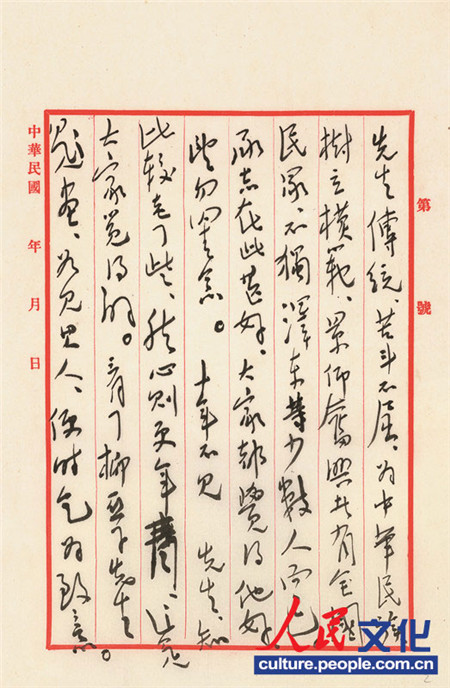 第 號
先生傳統、苦斗不屈、为中華民族
樹立模範、景仰奮興者有全國
民眾、不獨澤東等少數人而已
承志在此甚好、大家都覺得他好
望勿罣念。 十年不見 先生、知
比較老了些、然心則更年青、这是
大家覺得的。看了柳亞子先生
題畫、如見其人、便時乞为致意。
中華民國 年 月 日
人民文化
culture.people.com.cn
2